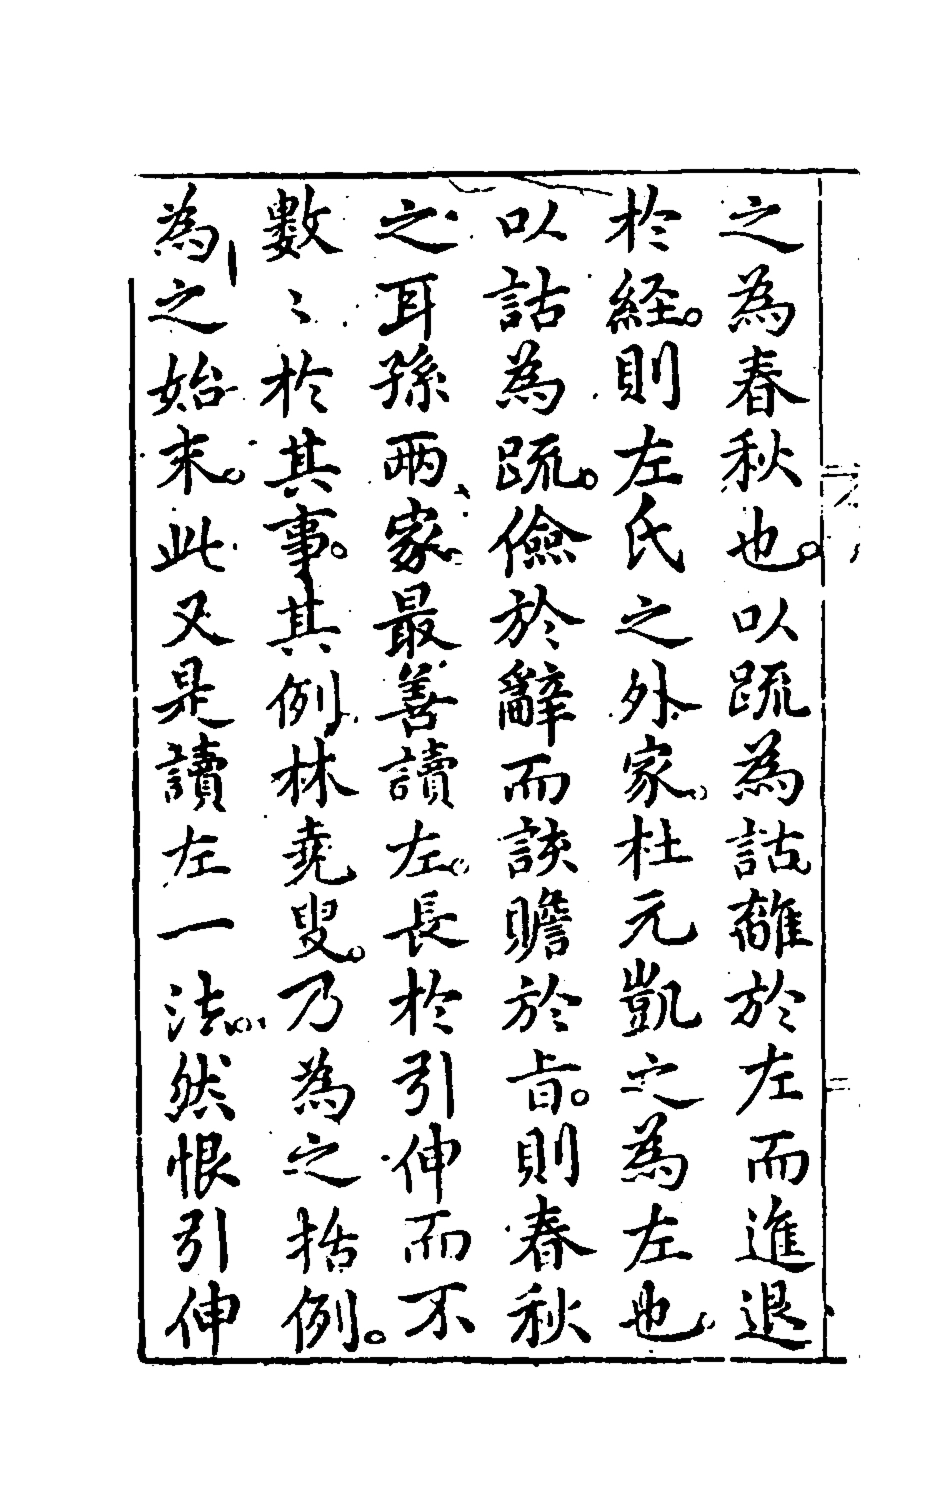 之為春秋也。以䟽為詁離於左而進退
於経。則左氏之外家。杜元凱之為左也
以詁為䟽。儉於辭而該贍於旨。則春秋
之耳孫兩家最善讀左。長於引伸而不
數〻於其事。其例林堯叟。乃為之括例。
為之始末。此又是讀左一法。然恨引伸